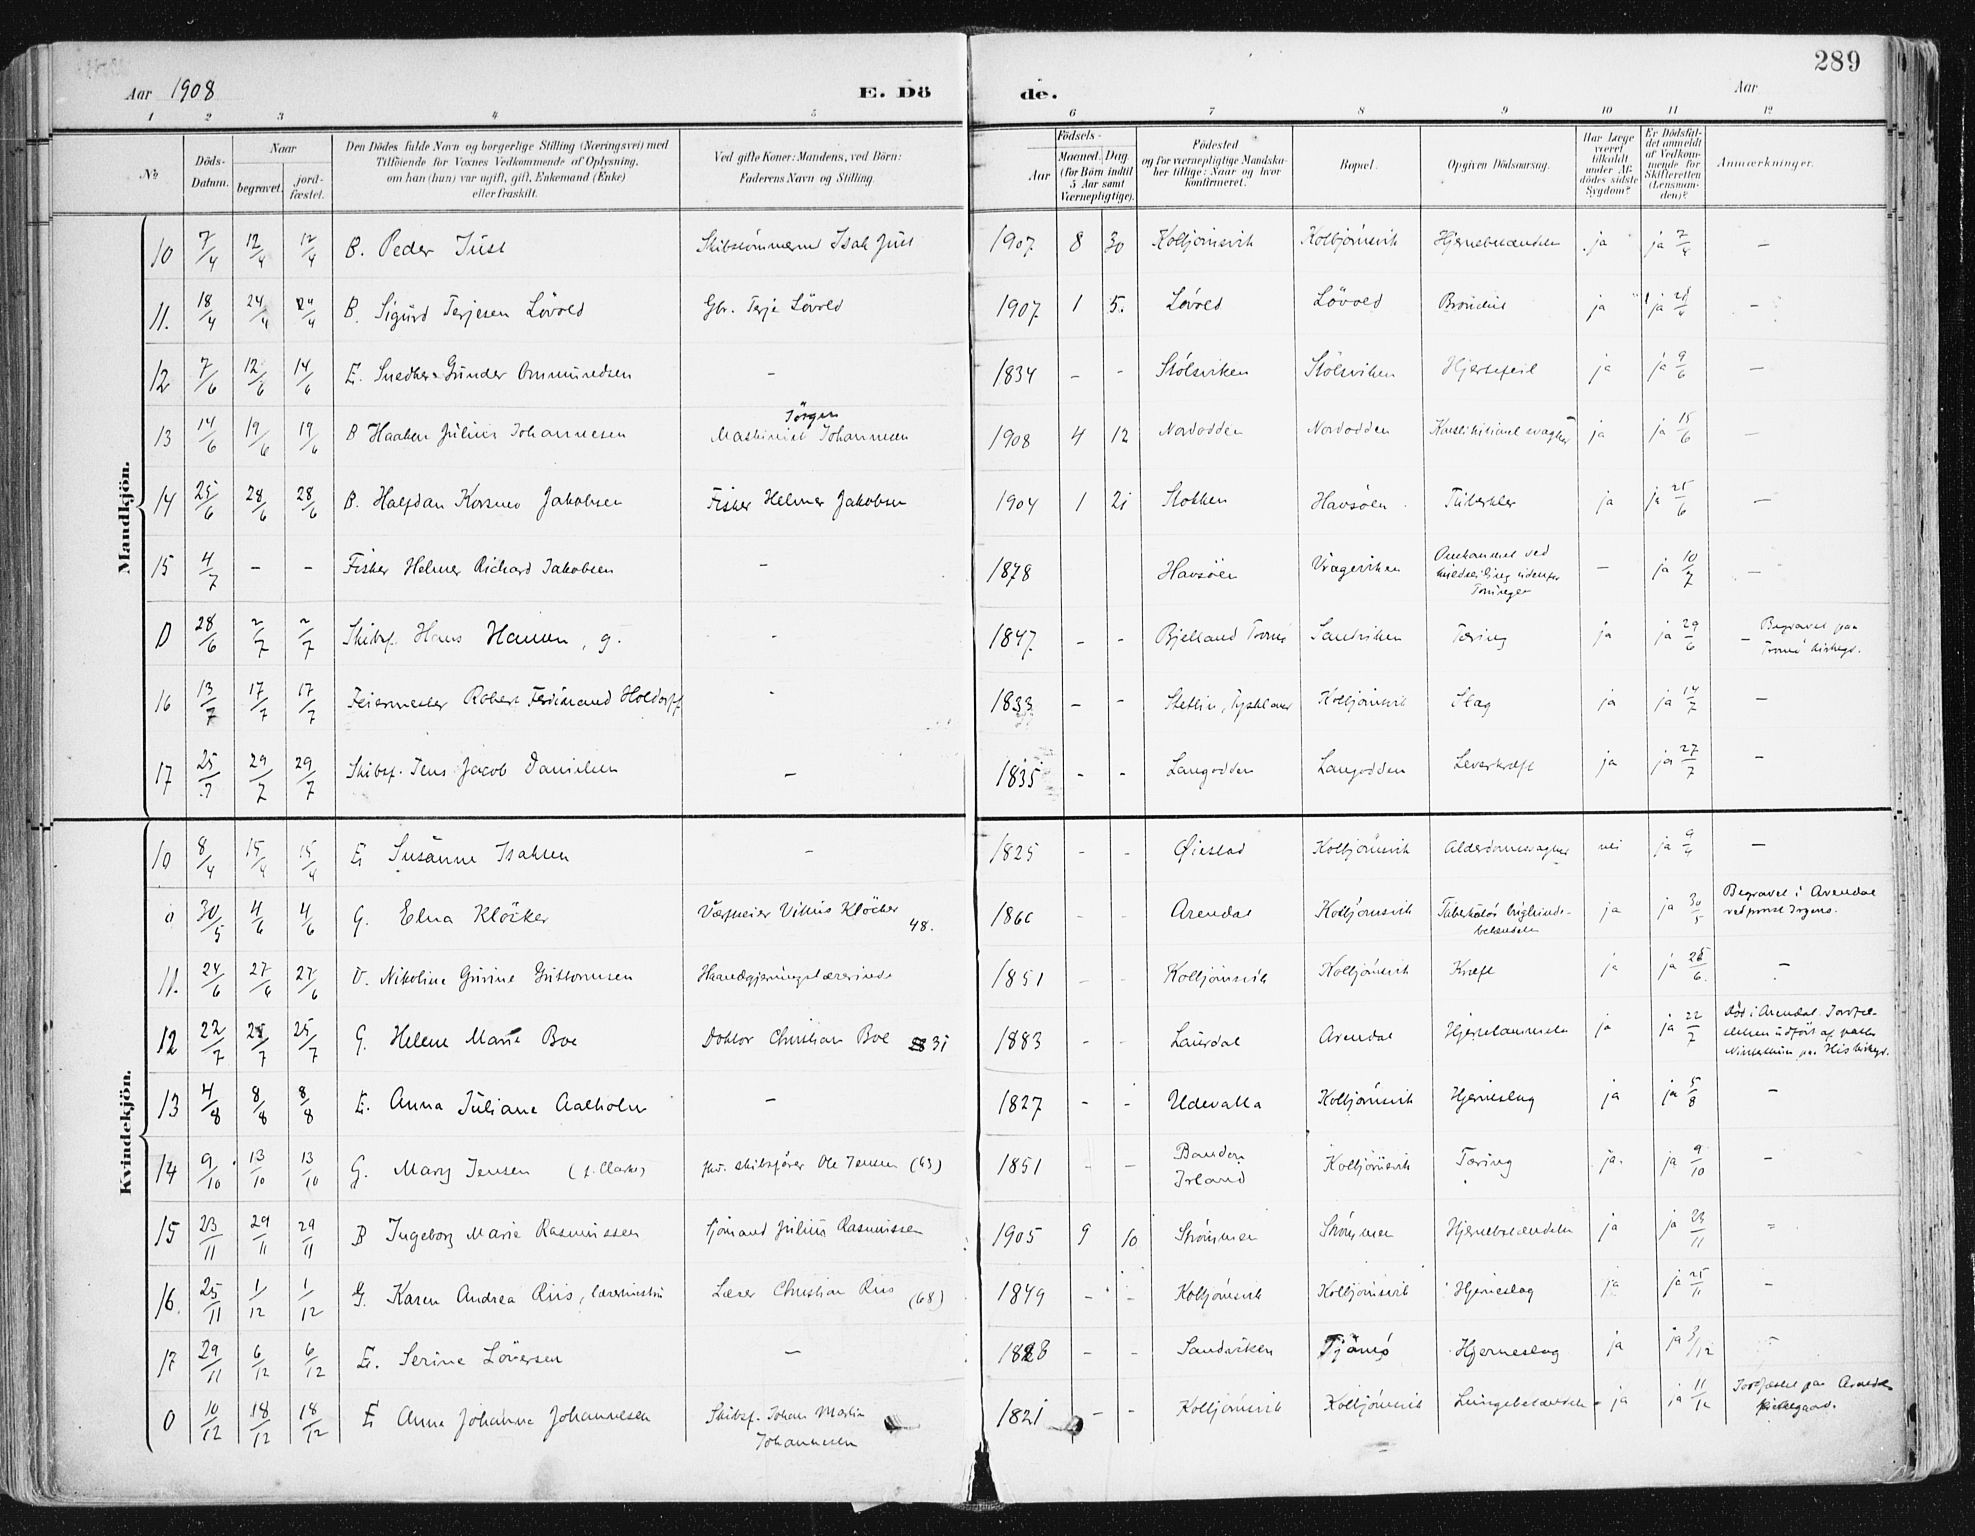 289
Aar 1908 E. Dö de. Aar
1 2 3 4 5 6 7 8 9 10 11 12
No Döds-Datum. Naar begravet. jordfæstet. Den Dödes fulde Navn og borgerlige Stilling (Næringsvei) med Tilföiende for Voxnes Vedkommende af Oplysning, om han (hun) var ugift, gift, Enkemand (Enke) eller fraskilt. Ved gifte Koner: Mandens, ved Börn: Faderens Navn og Stilling. Födsels- Aar Maaned. Dag. (for Börn indtil 5 Aar samt Værnepligtige). Födested og for værnepligtige Mandskaber tillige: Naar og hvor konfirmeret. Bopæl. Opgiven Dödsaarsag. Har Læge været tilkaldt under Afdödes sidste Sygdom? Er Dödsfaldet anmeldt af Vedkommende for Skifteretten (Lensmanden)? Anmærkninger.
Mandkjön.
10 7/4 12/4 12/4 B. Peder Just Skibstömmermd Isak Just 1907 8 30 Kolbjörnsvik Kolbjörnsvik Hjernebetændelse ja ja 7/4 –
11. 18/4 24/4 24/4 B. Sigurd Terjesen Lövold Gbr. Terje Lövold 1907 1 5. Lövold Lövold Bronkit ja ja 20/4 –
12 7/6 12/6 14/6 E. Snedker Gunder Ommundsen – 1834 – – Stölsviken Stölsviken Hjertefeil ja ja 9/6 –
13 14/6 19/6 19/6 B Haaken Julius Johannesen Maskinist Jörgen Johannesen 1908 4 12 Nordodden Nordodden ja ja 15/6 –
14 25/6 28/6 28/6 B. Halfdan Korsmo Jakobsen Fisker Helmer Jakobsen 1904 1 21 Stokken Havsöen Tuberkler ja ja 25/6 –
15 4/7 – – Fisker Helmer Richard Jakobsen – 1878 Havsöen Vrageviken Omkommet ved kuldseiling udenfor Torungen – ja 10/7 –
0 28/6 2/7 2/7 Skibsf. Hans Hansen, g. - 1847 – – Bjelland Tromö Sandviken Tæring ja ja 29/6 – Begravet paa Tromö kirkegd.
16 13/7 17/7 17/7 Feiermester Robert Ferdinand Holdorff - 1833 – – Stettin, Tyskland Kolbjörnsvik Slag ja ja 14/7 –
17 25/7 29/7 29/7 Skibsf. Jens Jacob Danielsen – 1835 – – Langodden Langodden Leverkræft ja ja 27/7 –
Kvindekjön.
10 8/4 15/4 15/4 E Susanne Isaksen – 1825 – – Øiestad Kolbjörnsvik Alderdomssvaghed nei ja 9/4 –
0 30/5 4/6 4/6 G. Elna Klöcker Værftseier Vilius Klöcker 48. 1860 – – Arendal Kolbjörnsvik Tuberkulös brighindebetændelse ja ja 30/5 Begravet i Arendal ved provst Irgens.
11. 24/6 27/6 27/6 U. Nikoline Gurine Guttormsen Haandgjerningslærerinde 1851 – – Kolbjörnsvik Kolbjörnsvik Kræft ja ja 25/6 –
12 22/7 25/7 25/7 G. Helene Marie Boe Doktor Christian Boe 31 1883 – – Laurdal Arendal Hjertelammelse ja ja 22/7 Död i Arendal. Jordfæstelsen udfört af pastor paa His kirkegd.
13 4/8 8/8 8/8 E. Anna Juliane Aalholm – 1827 – – Udevalla Kolbjörnsvik Hjerneslag ja ja 5/8 –
14 9/10 13/10 13/10 G. Mary Jensen (f. Clarke) fhv. skibsfører Ole Jensen (43) 1851 – – Bandon Irland Kolbjörnsvik Tæring ja. ja 9/10 –
15 23/11 29/11 29/11 B Ingeborg Marie Rasmussen Sjömand Julius Rasmussen 1905 9 10 Strömmen Strömmen Hjernebetændelse ja ja 23/11 –
16. 25/11 1/12 1/12 G. Karen Andrea Riis, lærerinde Lærer Christian Riis (68) 1849 – – Kolbjörnsvik Kolbjörnsvik Hjerneslag ja ja 25/11 –
17 29/11 6/12 6/12 E. Serine Löversen – 1828 – – Sandviken Tjömö Hjerneslag ja ja 3/12 –
0 10/12 18/12 18/12 E Anna Johanne Johannesen Skibsf. Johan Martin Johannesen 1821 – – Kolbjörnsvik Kolbjörnsvik Lungebetændelse ja ja 11/12 Jordfæstet paa Arendal kirkegaard.